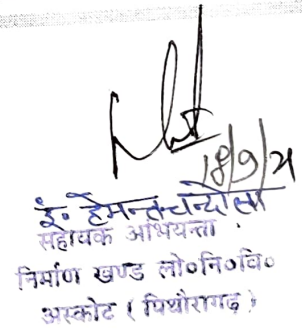 18/9/21
इं० हेमन्त चन्दोला
सहायक अभियन्ता
निर्माण खण्ड लो०नि०वि०
अस्कोट ( पिथौरागढ़ )